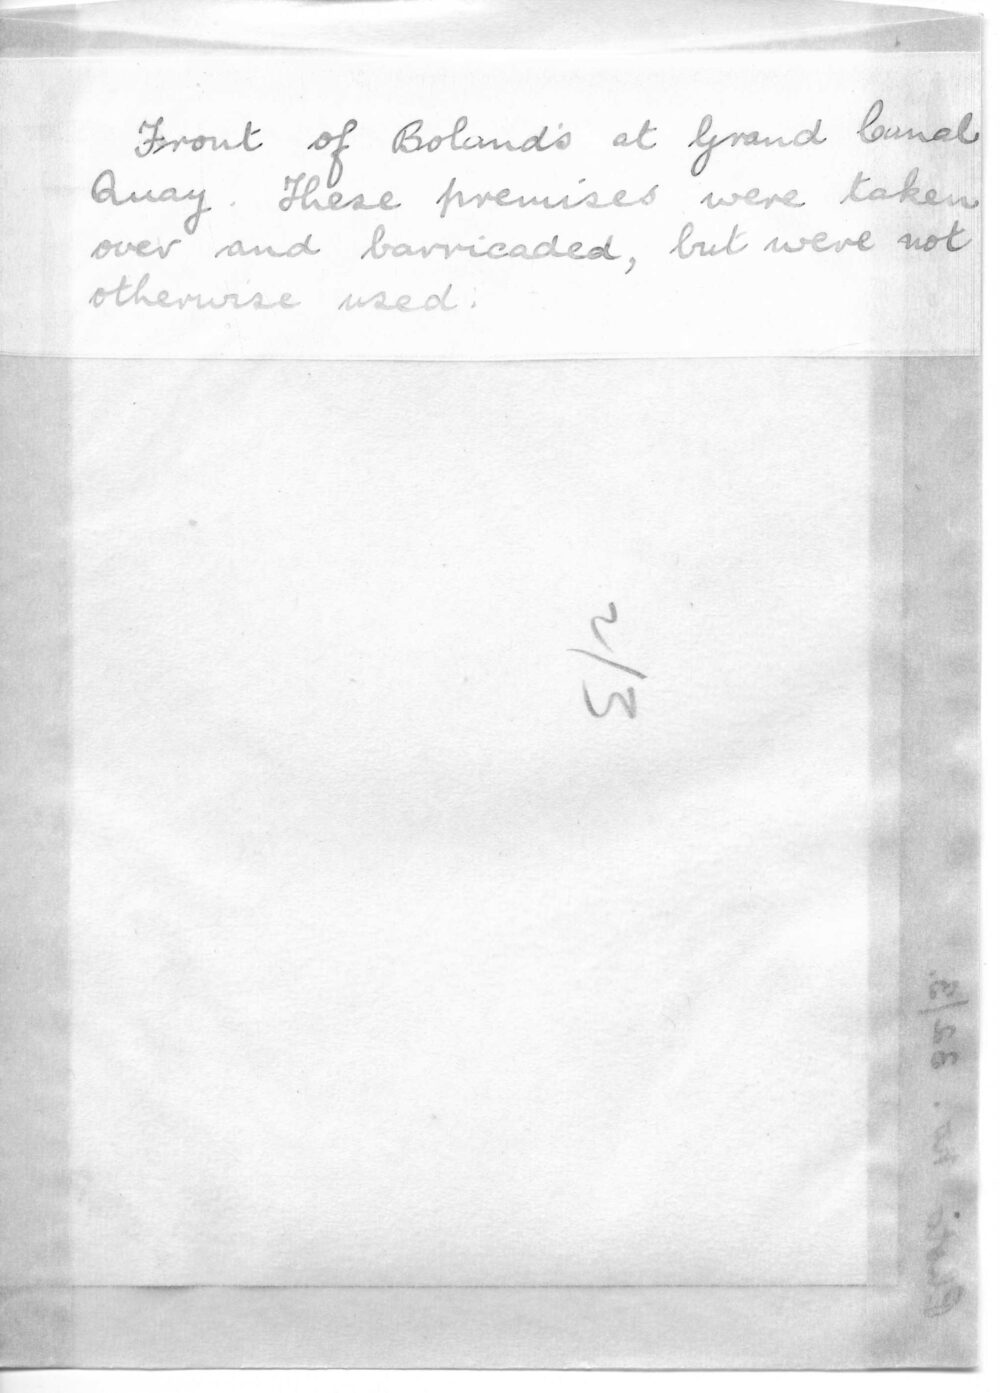 Front of Boland's at Grand Canal
Quay. These premises were taken
over and barricaded, but were not
otherwise used.
2/3
Photo No. 32/3.